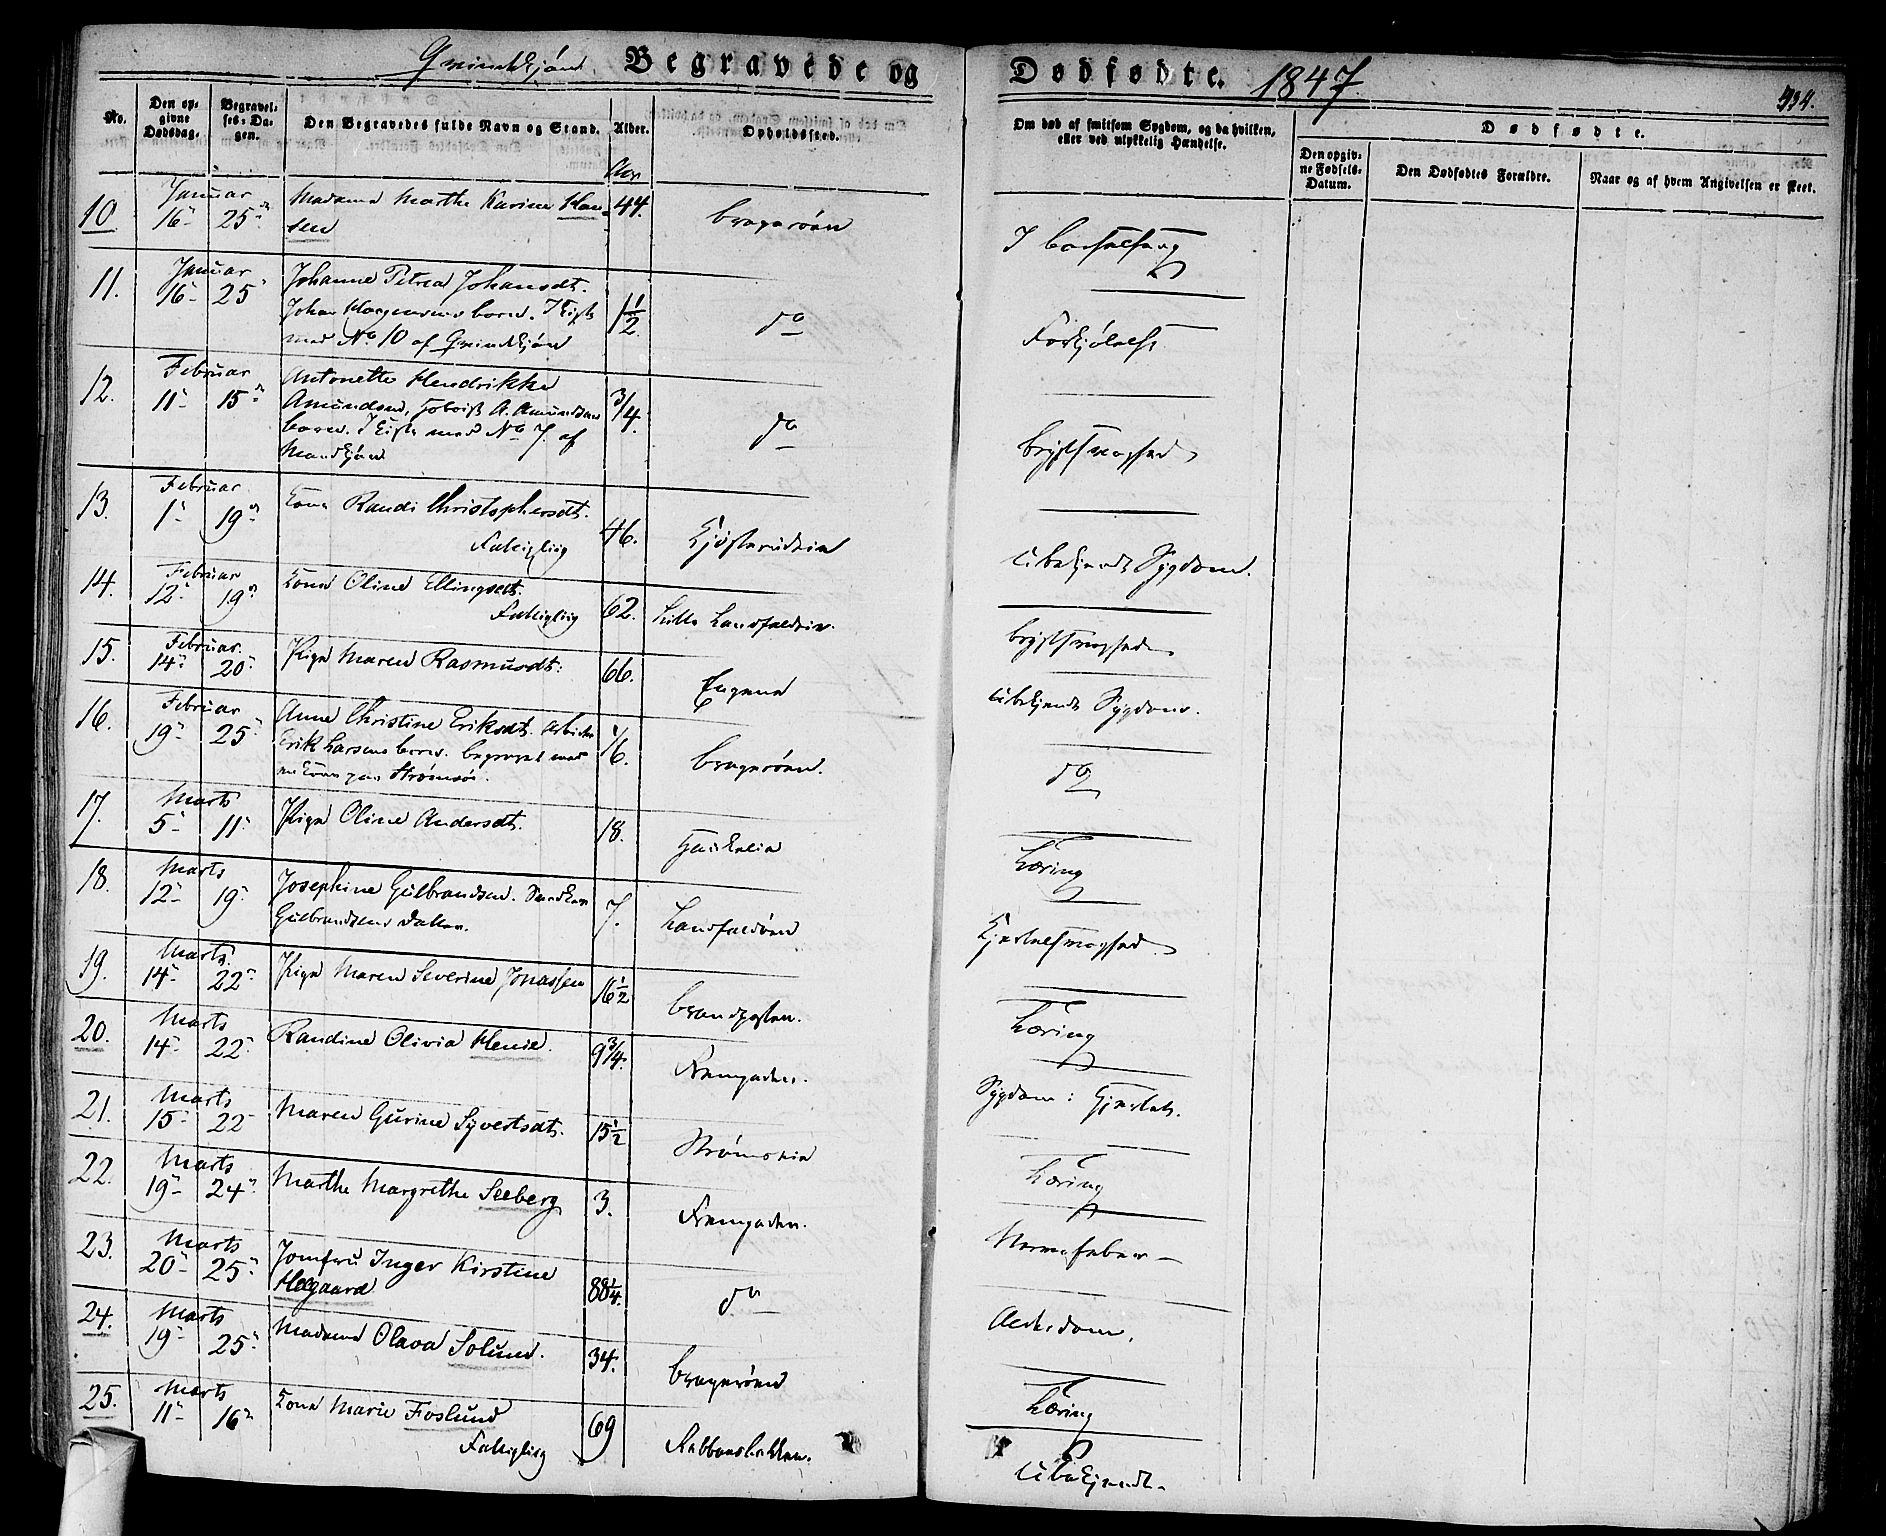 Qvindekjøn Begravede og Dødfødte. 1847. 434.
No. Den opgivne Dødsdag. Begravelses-Dagen. Den Begravedes fulde Navn og Stand. Alder. Opholdssted. Om død af smitsom Sygdom, og da hvilken, eller ved ulykkelig Hændelse. Dødfødte. Den opgivne Fødsels-Datum. Den Dødfødtes Forældre. Naar og af hvem Angivelsen er skeet.
Aar
10. Januar 16 25 Madame Marthe Karine Hansen 44. Bragerøen I Barselseng
11. Januar 16 25 Johanne Petrea Johansdt.
Johan Barn. I Kiste
med No 10 af Qvindekjøn 1 1/2. do Forkjølelse
12. Februar 11 15 Antonette Hendrikke
Amundsen, A. Amundsens
Barn. I Kiste med No 7. af
Mandkjøn 3/4. do Brystsvaghed
13. Februar 1 19 Kone Randi Christophersdt.
Fattiglig 46. Ubekjendt Sygdom.
14. Februar 12 19 Kone Oline Ellingsdt.
Fattiglig 62. Lille Landfaldøen. Brystsvaghed
15. Februar 14 20 Pige Maren Rasmusdt. 66. Engene Ubekjendt Sygdom.
16. Februar 19 25 Anne Christine Eriksdt. Arbeider
Erik Larsens Barn. begravet med
en Kone paa Strømsøe. 1/6. Bragerøen. do
17. Marts 5 11 Pige Oline Andersdt. 18. Tæring
18. Marts 12 19 Josephine Gulbrandsen.
Gulbrandsens Datter. 7. Landfaldøen Kjertelsvaghed
19. Marts 14 22 Pige Maren Severine Jonassen 16 1/2 Brandposten. Tæring
20. Marts 14 22 Randine Olivia Henie. 9 3/4. Sygdom i Kjertel.
21. Marts 15 22 Maren Gurine Syvertsdt. 15 1/2 Tæring
22. Marts 19 24 Marthe Margrethe Seeberg 3. Nervefeber
23. Marts 20 25 Jomfru Inger Kirstine
Helgaard 88 1/4. do Alderdom.
24. Marts 19 25 Madame Olava Solund. 34. Bragerøen Tæring
25. Marts 11 16 Kone Marie Foslund
Fattiglig 69 Rabbensbakken. Ubekjendt.